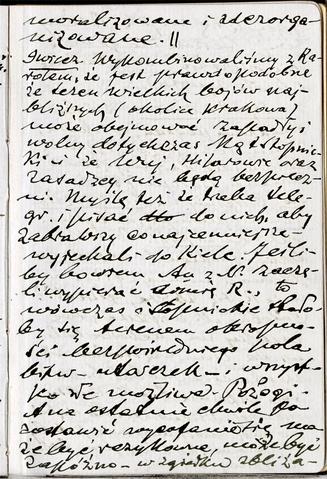 moralizowane i zdezorga-
nizowane. ||
Wykombinowaliśmy z Ka-
rolem, że jest prawdopodobne
że teren wielkich bojów naj-
bliższych (okolice Krakowa)
może obejmować zapadły i
wolny dotychczas kąt stopnic-
ki i że Hilarowie oraz
zasadzcy nie będą bezpiecz-
ni. Myślę też że trzeba tele-
gr. i pisać do nich, aby
zabrawszy co najcenniejsze
wyjechali do Kielc. Jeśli-
by bowiem An z N. zaczę-
li wypierać armię R., to
wówczas Stopnickie stało-
by się terenem okropno-
ści bezpośredniego pola
bitw – ucieczek – i wszyst-
ko złe możliwe. Pożogi.
A na ostatnie chwile po-
zostawić wypatrywanie mo-
że być ryzykowne, może być
zapóźno – w zgiełku zbliża-